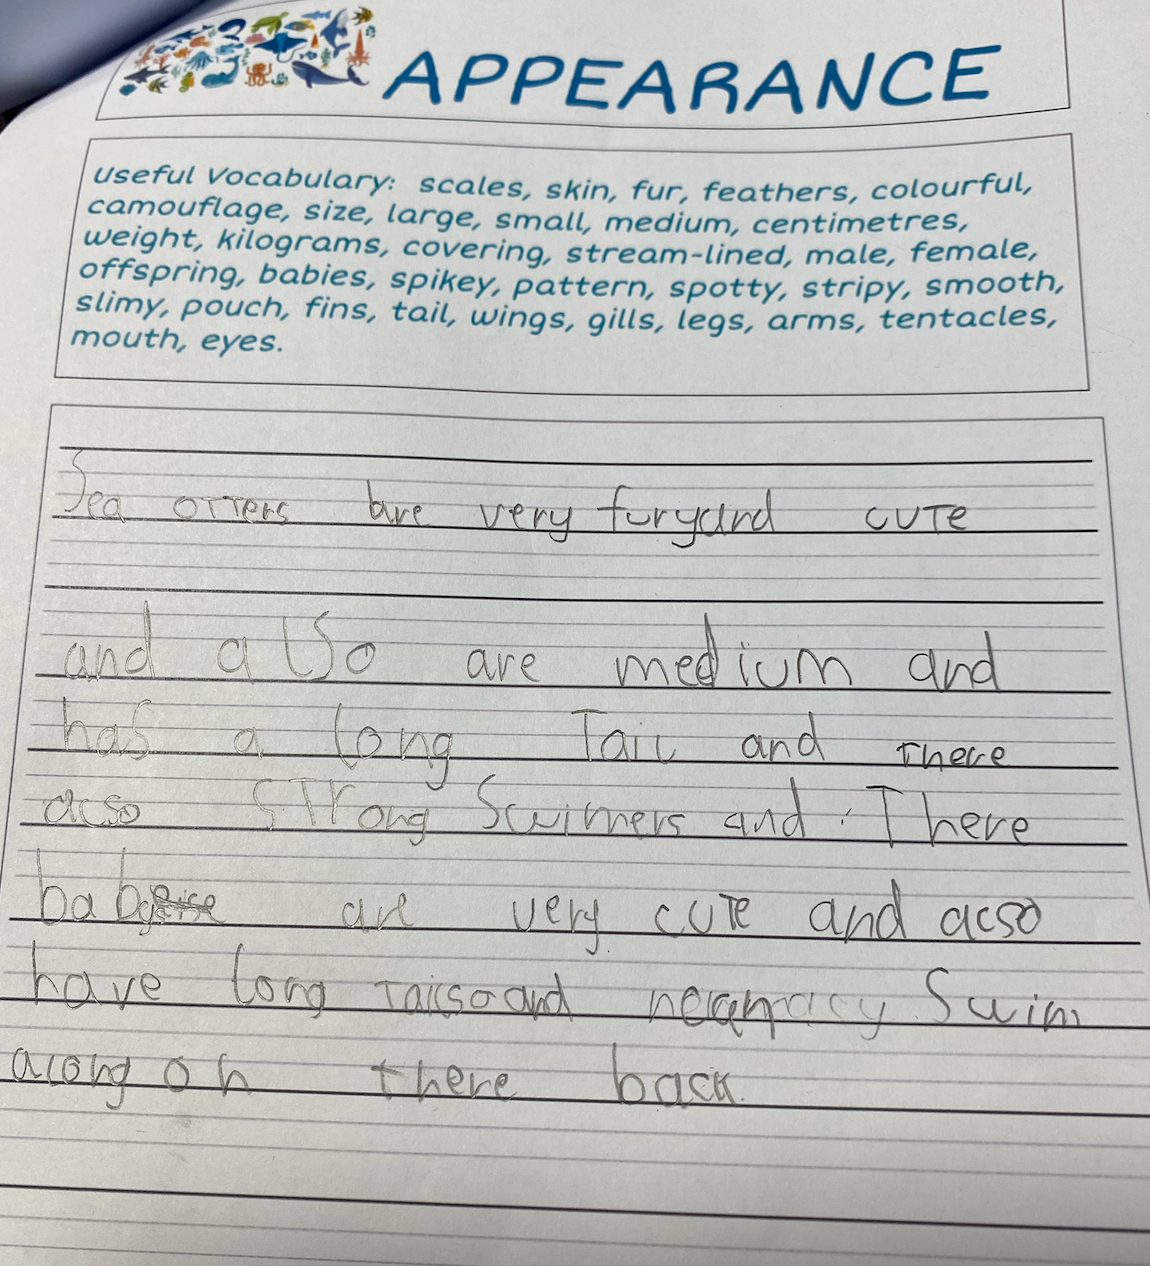 APPEARANCE
Useful Vocabulary: scales, skin, fur, feathers, colourful,
camouflage, size, large, small, medium, centimetres,
weight, kilograms, covering, stream-lined, male, female,
offspring, babies, spikey, pattern, spotty, stripy, smooth,
slimy, pouch, fins, tail, wings, gills, legs, arms, tentacles,
mouth, eyes.
Sea otters are very fury and cute
and also are medium and
has a long Tail and there
also strong Swimers and . There
are very cute and also
have long and Swim
along on there back.